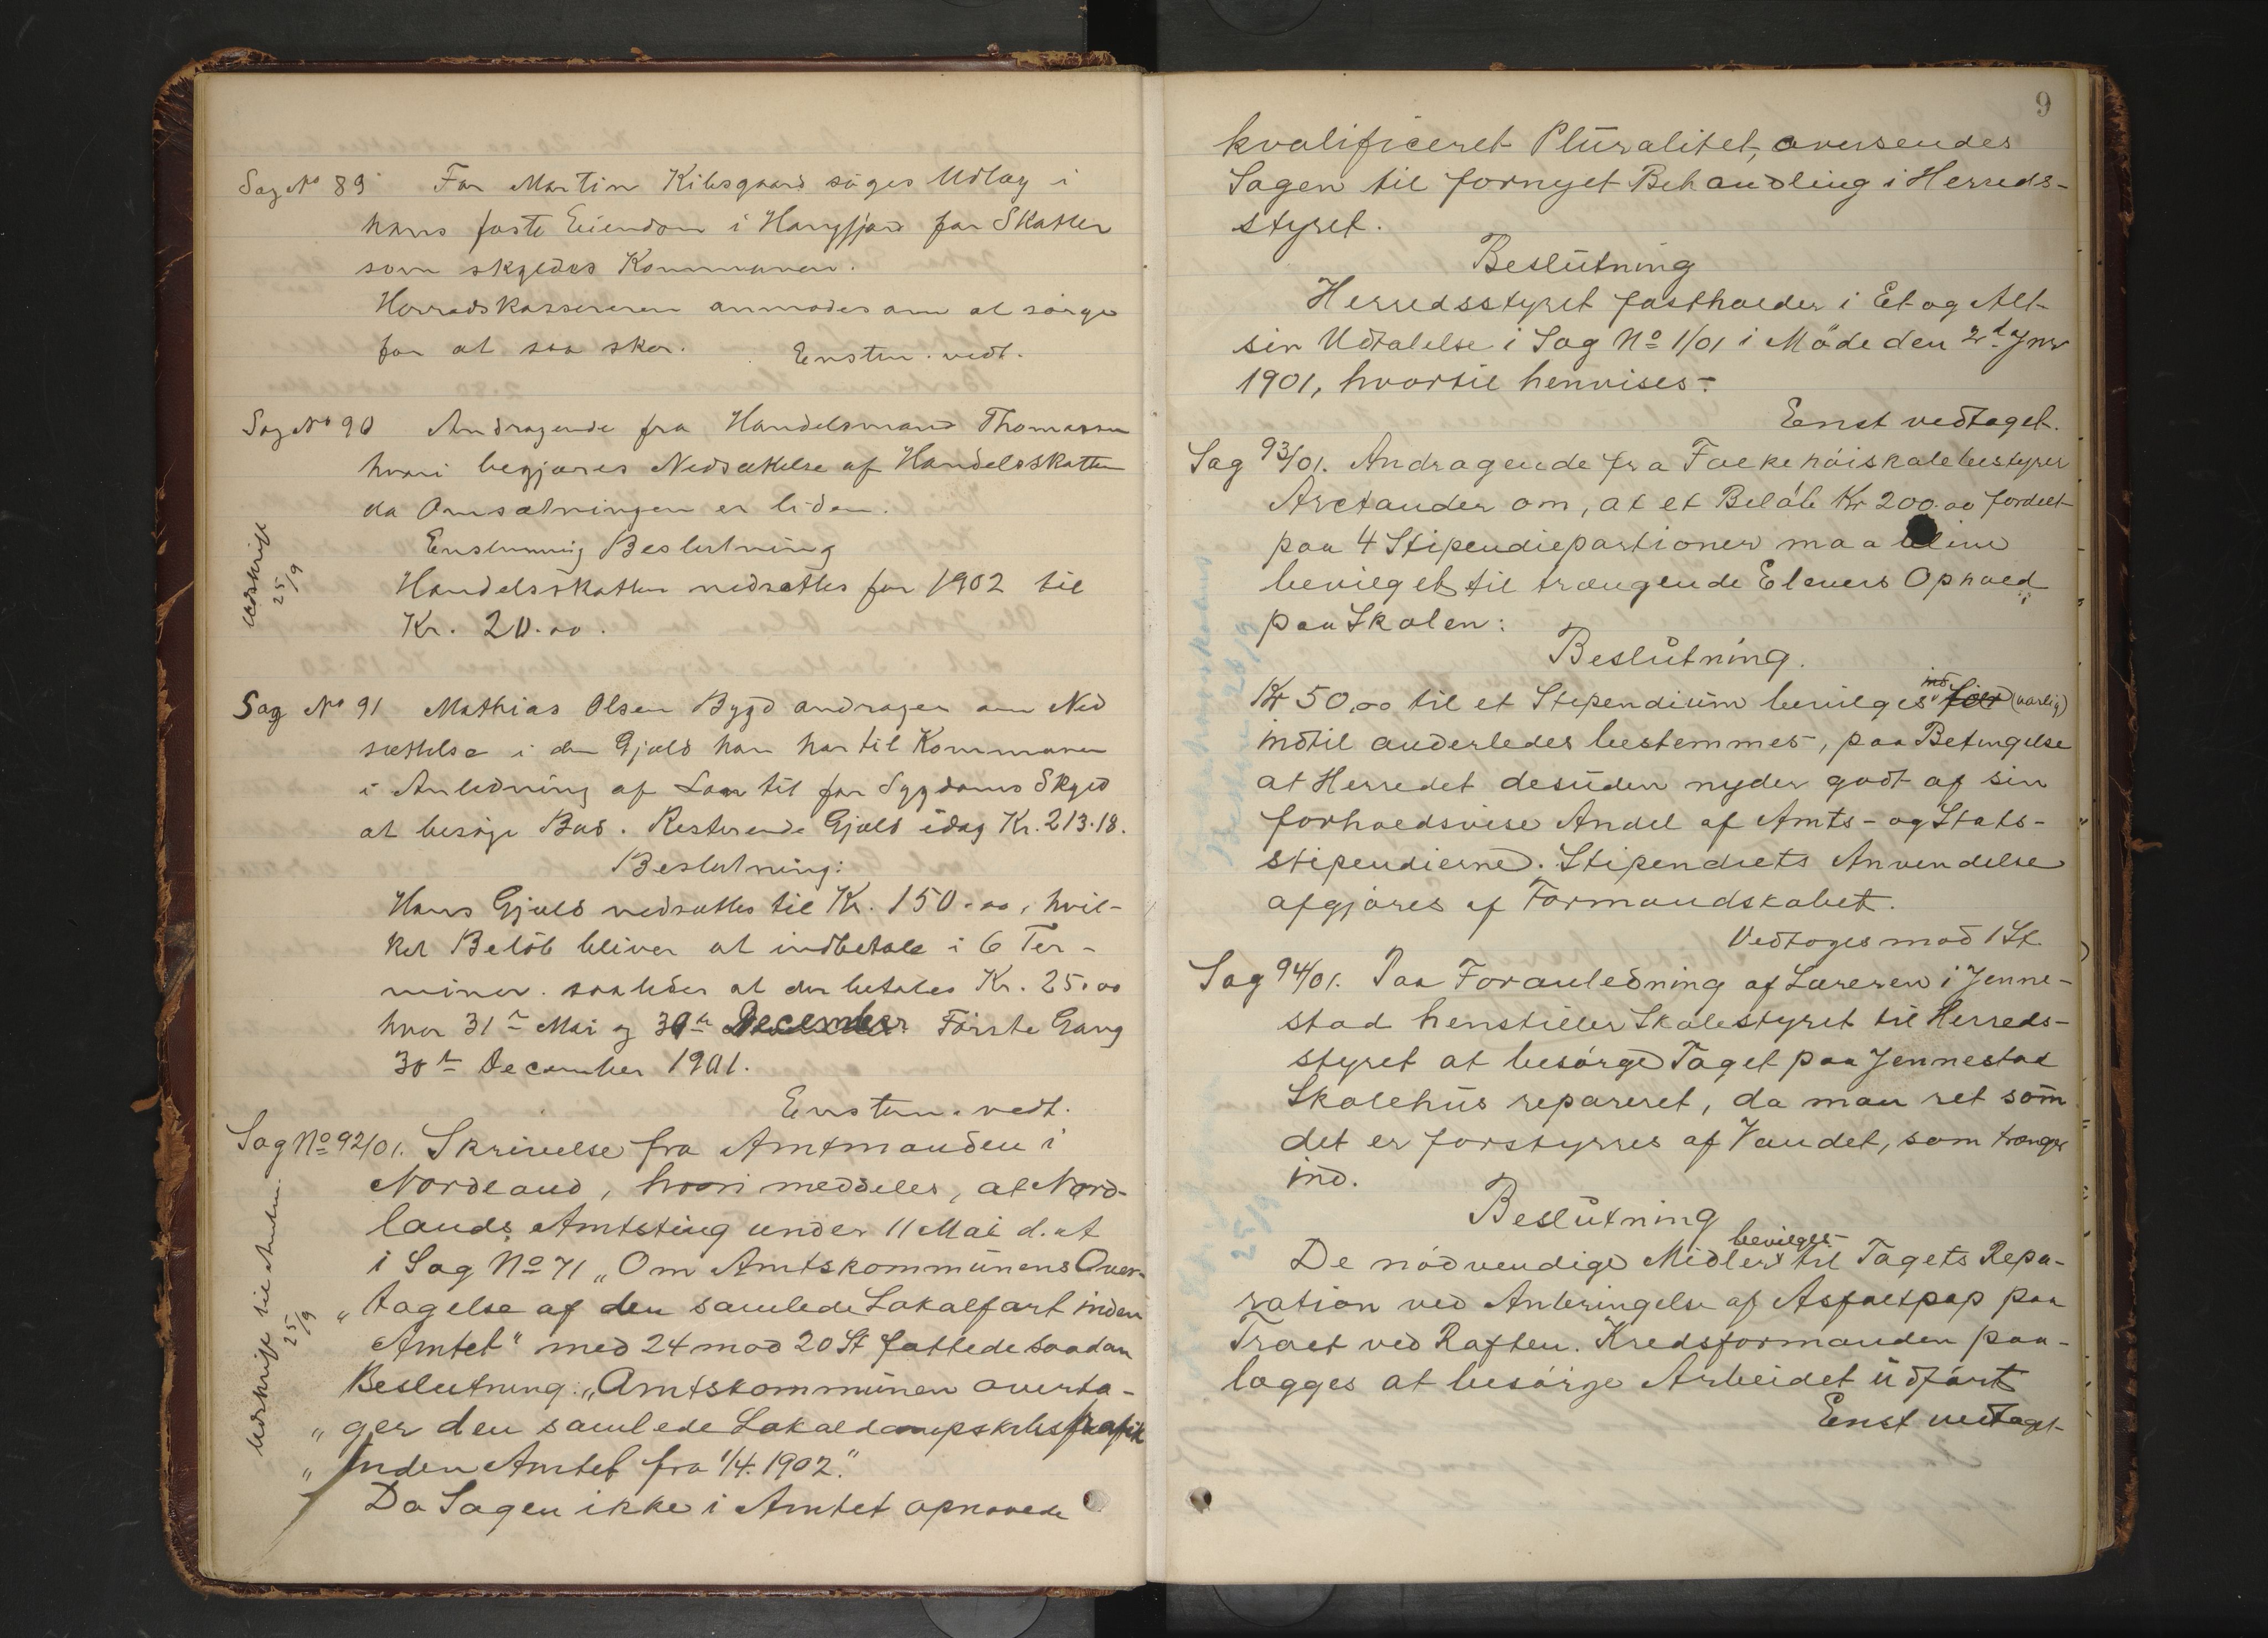 Sag No 89 For Martin Kilsgaard söges Udlæg i
hans faste Eiendom i Hangfjord for Skatter
som skyldes Kommunen.
Herredskassereren anmodes om at sörge
for at saa sker. Enstem. vedt.
Sag No 90 Andragende fra Handelsmand Thomassen
hvori begjæres Nedsættelse af Handelsskatten
da Omsætningen er liden.
Enstemmig Beslutning
Handelsskatten nedsættes for 1902 til
Kr. 20.00.
Udskrift
25/9
Sag No 91 Mathias Olsen Bygd andrager om Ned
sættelse i den Gjæld han har til Kommunen
i Anledning af Laan til for Sygdoms Skyld
at besöge Bad. Resterende Gjæld idag Kr. 213.18.
Beslutning:
Hans Gjæld nedsættes til Kr. 150.00, hvil-
ket Belöb bliver at indbetale i 6 Ter-
miner. saaledes at der betales Kr. 25.00
hver 31te Mai og 30te December Förste Gang
30te December 1901.
Enstem. vedt.
Sag No 92/01. Skrivelse fra Amtmanden i
Nordland, hvori meddeles, at Nord-
lands Amtsting under 11 Mai d. A
i Sag No 71 „Om Amtskommunens Over-
„tagelse af den samlede Lokalfart inden
Amtet" med 24 mod 20 St fattede saadan
Beslutning: „Amtskommunen overta-
„ger den samlede Lokaldampskibstrafik
„inden Amtet fra 1/4. 1902."
Da Sagen ikke i Amtet opnaaede
Udskrift til Amtm.
25/9
9
kvalificeret Pluralitet, oversendes
Sagen til fornyet Behandling i Herreds-
styret.
Beslutning
Herredsstyret fastholder i Et og Alt
sin Udtalelse i Sag No 1/01 i Möde den 2d Jnr
1901, hvortil henvises.
Enst vedtaget.
Sag 93/01. Andragende fra Folkehöiskolebestyrer
Arctander om, at et Belöb Kr 200.00 fordelt
paa 4 Stipendieportioner maa blive
bevilget til trængende Elevers Ophold
paa Skolen:
Beslutning.
Kr 50,00 til et Stipendium bevilges (aarlig)
indtil anderledes bestemmes, paa Betingelse
at Herredet desuden nyder godt af sin
forholdsvise Andel af Amts- og Stats-
stipendierne. Stipendiets Anvendelse
afgjöres af Formandskabet.
Vedtoges mod 1 St.
Sag 94/01. Paa Foranledning af Læreren i Jenne-
stad henstiller Skolestyret til Herreds-
styret at besörge Taget paa Jennestad
Skolehus repareret, da man ret som
det er forstyrres af Vandet, som trænger
ind.
Beslutning
De nödvendige Midler bevilges til Tagets Repa-
ration ved Anbringelse af Asfaltpap paa
Træet ved Raften. Kredsformanden paa-
lægges at besörge Arbeidet udfört
Enst vedtaget